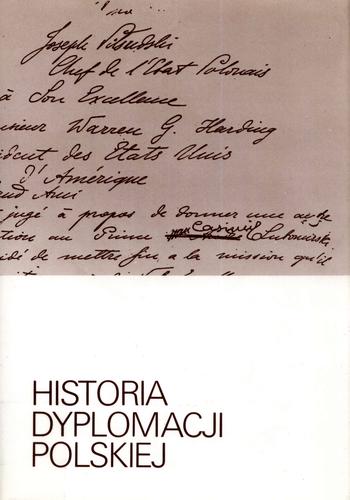 Joseph Piłsudski
Chef de l'Etat Polonais
à Son Excellence
sieur Warren G. Harding
sident des Etats Unis
d'Amerique
and Ami
jugé à propos de donner une autre
tion au Prince Casimir Lubomirski
idé de mettre fin à la mission qu'il
HISTORIA
DYPLOMACJI
POLSKIEJ